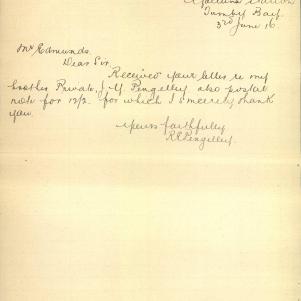 Station
Tumby Bay
3rd June 16
Mr Edmunds.
Dear Sir.
Received your letter re my
brother Private, J. Y. Pengelley also postal
note for 12/2. for which I sincerely thank
you.
Yours faithfully
R. Pengelley.